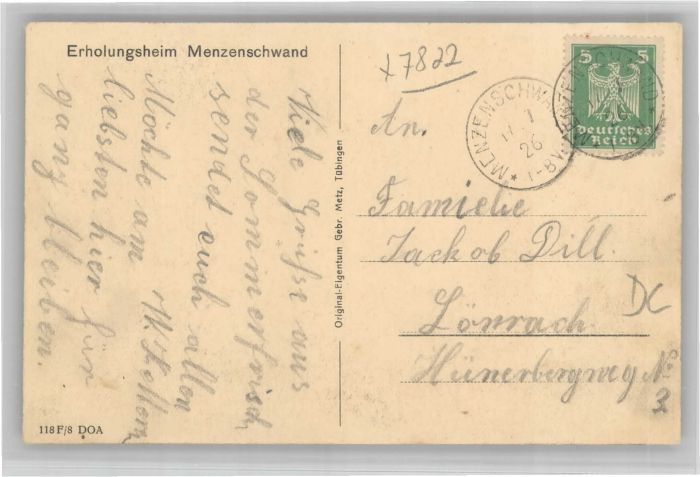 Erholungsheim Menzenschwand
Viele Grüße aus
der Sommerfrisch
sendet euch allen
W. Kellerz
Möchte am
liebsten hier für
ganz bleiben.
118 F/8 DOA
Original-Eigentum Gebr. Metz, Tübingen
+7822
MENZENSCHWAND
1
26
5 5
Deutsches
Reich
An.
Familie
Jackob Dill.
Lörrach
Hünerbergweg No
3
DC